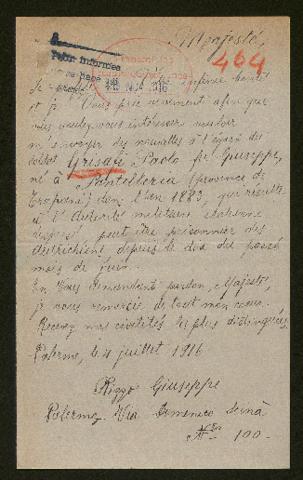 Majesté,
404
Pour informer
NOV 1916
infinie bonté
et je Vous prie vivement afin que
vous voulez vous intéresser
m'envoyer des nouvelles à l'égard du
soldat Grisafi Paolo fu Giuseppe,
né à Pantelleria (province de
Trapani) dans l'an 1883, qui résulte
à l'Autorité militaire italienne
dispersé, peut être prisonnier des
Autrichiens depuis le dix du passé
mois de juin.
En Vous demandant pardon, Majesté,
je vous remercie de tout mon coeur.
Recevez mes civilités les plus distinguées.
Palerme, le 4 juillet 1916
Rizzo Giuseppe
Palerme, Via Domenico Scinà
N. 100.